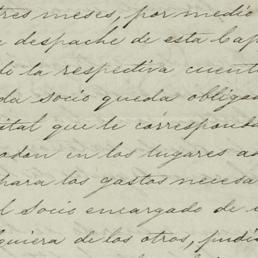 tres meses, por medio
despache de esta Cap
la respectiva cuent
da socio queda obliga
ital que le corresponda
en los lugares a
hara los gastos necesa
l socio encargado de
quiera de los otros, pudie